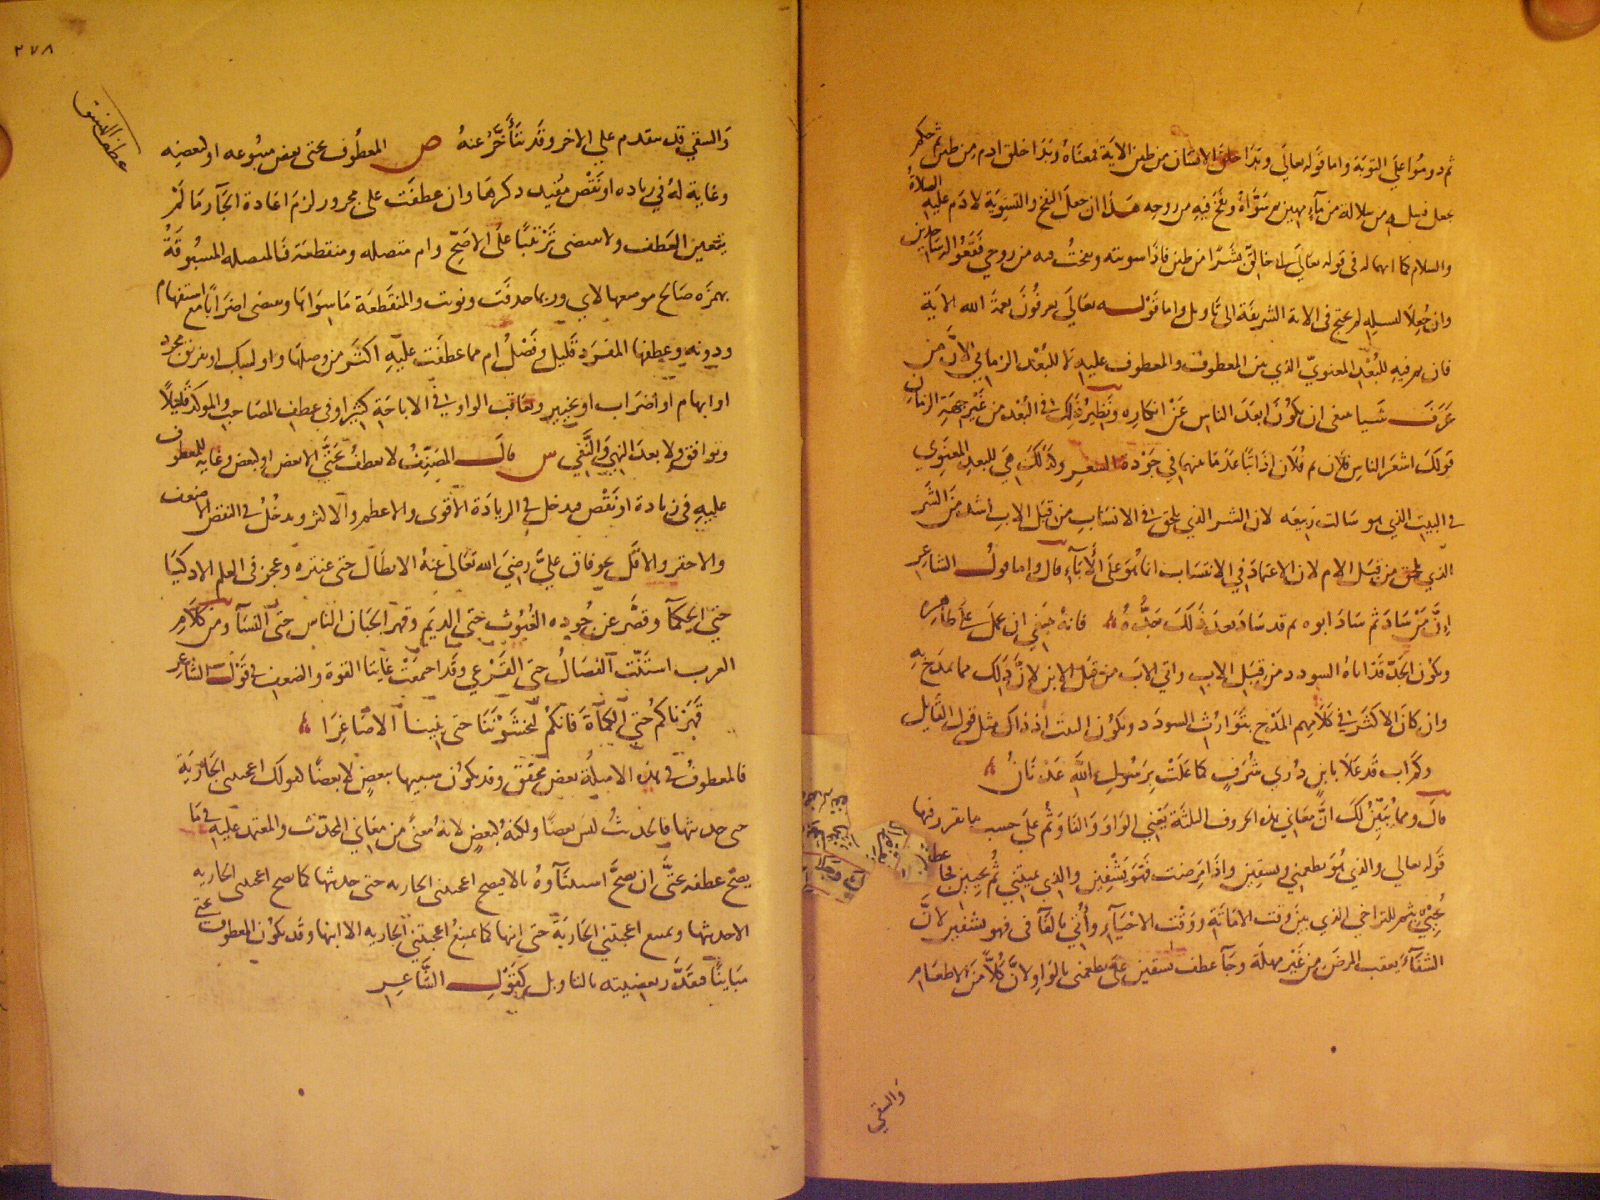 ثم دوموا على التوبة واما قوله تعالى وبدا خلق الانسان من طين الاية فمعناه وبدا خلق ادم من طين ثم حكم
بجعل نسله من سلالة من ماء مهين ثم سواه ونفخ فيه من روحه هذا ان جعل النفخ والتسوية لادم عليه الصلاة
والسلام كما انهما له في قوله تعالى اني خالق بشرا من طين فاذا سويته ونفخت فيه من روحي فقعوا له ساجدين
وان جعلا لنسله لم يحتج في الاية الشريفة الى تاويل واما قوله تعالى يعرفون نعمة الله الاية
فان ثم فيه للبعد المعنوي الذي بين المعطوف والمعطوف عليه لا للبعد الزماني لان من
عرف شيا ينبغي ان يكون ابعد الناس عن انكاره ونظير ذلك في البعد من غير جهة الزمان
قولك اشعر الناس فلان ثم فلان اذا تباعد ما بينهما في جودة الشعر وكذلك هي للبعد المعنوي
في البيت الذي سالت زيعه لان الشر الذي يلحق في الانتساب من قبل الاب اشد من الشر
الذي يلحق من قبل الام لان الاعتماد في الانتساب انما هو على الأباء قال واما قول الشاعر
ان من ساد ثم ساد ابوه ثم قد ساد بعد ذلك جده فانه ينبغي ان يحمل على ظاهره
ويكون الجد قد اتاه السودد من قبل الاب واتي الاب من قبل الابن لان ذلك مما يمدح به
وان كان الاكثر في كلامهم المدح بتوارث السودد ويكون البيت اذ ذاك مثل قول القايل
وكم اب قد علا بابن ذري شرف كما علت برسول الله عدنان
قال ومما يبين لك ان معاني هذه الحروف الثلثة يعني الواو والفا وثم على حسب ما تقرر فيها
قوله تعالى والذي هو يطعمني ويسقين واذا مرضت فهو يشفين والذي يميتني ثم يحيين فجا عطف
يحيين بثم للتراخي الذي بين وقت الاماتة ووقت الاحياء وأتي بالفا في فهو يشفين لان
الشفاء يعقب المرض من غير مهلة وجا عطف يسقين على يطعمني بالواو لان كلا من الاطعام
والسقي
٢٧٨
عطف النسق
والسقي قد يتقدم على الاخر وقد يتأخر عنه ص المعطوف بحتى بعض متبوعه او كبعضه
وغاية له في زياده او نقص مفيد ذكرها وان عطفت على مجرور لزم اعادة الجار ما لم
يتعين العطف ولا تقتضي ترتيبا على الاصح وام متصله ومنقطعة فالمتصله المسبوقة
بهمزه صالح موضعها لاي وربما حذفت ونويت والمنقطعة ما سواها وتقتضي اضرابا مع استفهام
ودونه وعطفها المفرد قليل وفصل ام مما عطفت عليه اكثر من وصلها واو لشك او تفريق مجرد
او ابهام او اضراب او تخيير وتعاقب الواو في الاباحة كثيرا وفي عطف المصاحب والموكد قليلا
وتوافق ولا بعد النهي والنفي س قال المصنف لا تعطف بحتي الا بعض او كبعض وغايه للمعطوف
عليه في زيادة او نقص فيدخل في الزيادة الاقوى والاعظم والاكثر ويدخل في النقص الاضعف
والاحقر والاقل نحو فاق علي رضي الله تعالى عنه الابطال حتى عنتره وعجز في العلم الاذكيا
حتى الحكما وقصر عن جوده الغيوث حتى الديم وقهر الجبان الناس حتى النسا ومن كلام
العرب استنت الفصال حتى القرعي وقد اجتمعت غايتا القوة والضعف في قول الشاعر
قهرناكم حتى الكماة فانكم لتخشوننا حتى بنينا الاصاغرا
فالمعطوف في هذه الامثلة بعض محقق وقد يكون شبيها ببعض لا بعضا كقولك اعجبتني الجارية
حتى حديثها فالحديث ليس بعضا ولكنه كبعض لانه معنى من معاني المحدث والمعتمد عليه في ما
يصح عطفه بحتى ان يصح استثناوه بالا فيصح اعجبتني الجاريه حتى حديثها كما يصح اعجبتني الجاريه
الا حديثها ويمتنع اعجبتني الجارية حتى ابنها كما يمتنع اعجبتني الجاريه الا ابنها وقد يكون المعطوف بحتي
مباينا فتقدر بعضيته بالتاويل كقول الشاعر